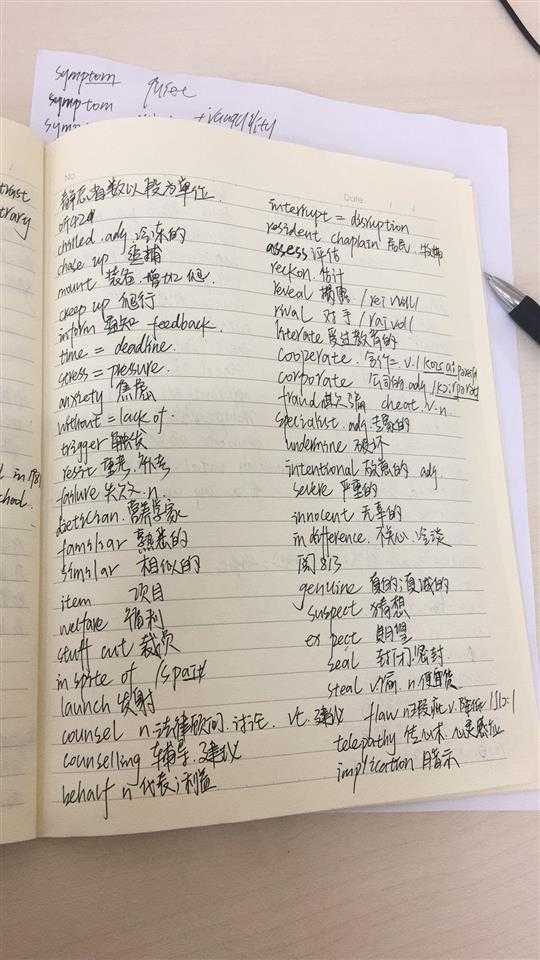 symptom quiet
symptom
trast
trary
No.
Date
解忌者数以段为单位.
听C2
chilled. adj 冷冻的
chase up 追捕
mount 装备.增加 爬.
creep up 爬行
inform 通知 feedback.
time = deadline.
stress = pressure.
anxiety 焦虑
without = lack of.
trigger 触发
resit 重考.补考
failure 失效. n
dietician. 营养学家
familiar 熟悉的
similar 相似的
item 项目
welfare 福利
stuff cut 裁员
in spite of /spait/
launch 发射
counsel n 法律顾问.讨论. vt. 建议
counselling 辅导.建议
behalf n 代表;利益
interrupt = disruption
resident chaplain 居民. 牧师
assess 评估
reckon 估计
reveal 揭露 /rei vol/
rival 对手 /raivol/
literate 受过教育的
cooperate. 合作 v.
corporate 公司的 adj
fraud 欺骗 cheat. v. n.
specialist. adj 专家的
undermine 破坏
intentional 故意的 adj
severe 严重的
innocent 无辜的
indifference. 不关心. 冷淡
阅 813
genuine 真的;真诚的
suspect 猜想
expect 期望
seal 封闭.密封
steal v 偷. n. 便宜货
flaw n 瑕疵 v.
telepathy 传心术 心灵感应
implication 暗示